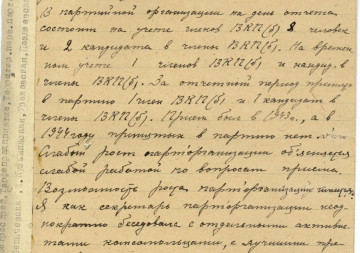 В партийной организации на день отчета
состоят на учете членов ВКП(б) 8 человек
и 2 кандидата в члены ВКП(б). На времен
ном учете 1 членов ВКП(б) и кандид. в
члены ВКП(б). За отчетный период принято
в партию 1 член ВКП(б) и 1 кандидат в
члены ВКП(б). Прием был в 1943г., а в
1944 году принятых в партию нет.
Слабый рост парторганизации объясняется
слабой работой по вопросам приема.
Возможность роста парторганизации имеется.
Я как секретарь парторганизации неод
нократно беседовал с отдельными активис
тами комсомольцами, с лучшими пре